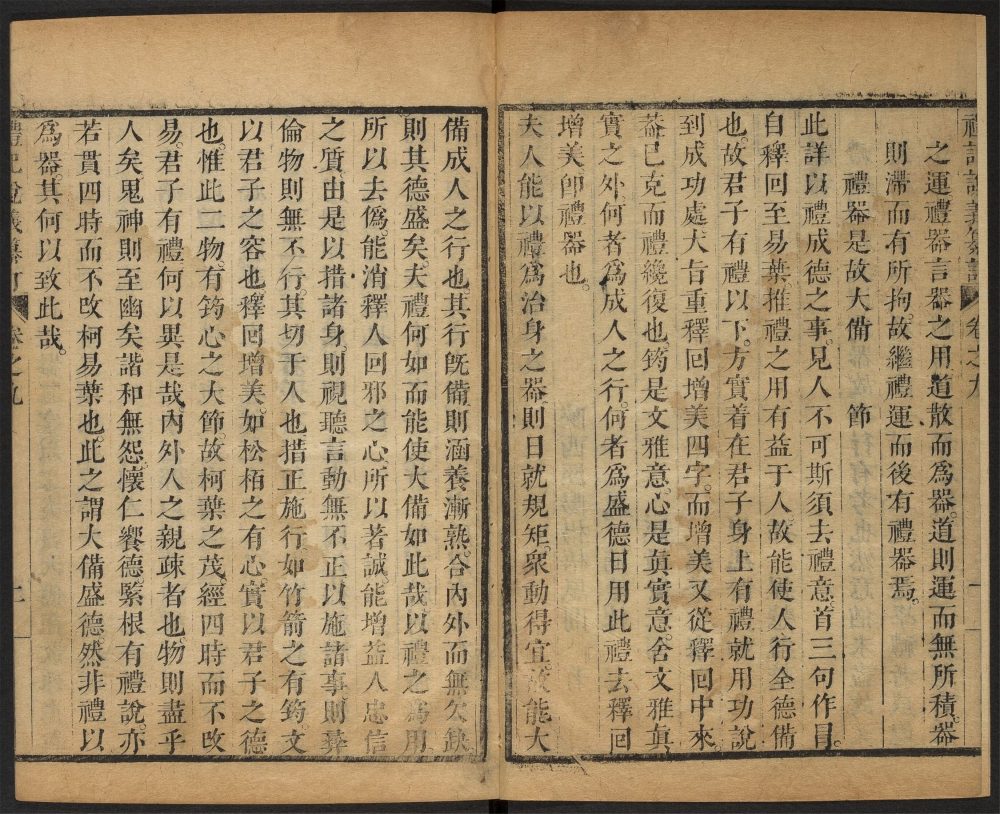 禮記說義纂訂 卷之九 一
之運禮器言器之用道散而為器道則運而無所積器
則滯而有所拘故繼禮運而後有禮器焉。
禮器是故大備 節
此詳以禮成德之事見人不可斯須去禮意首三句作冒。
自釋回至易葉推禮之用有益于人故能使人行全德備
也。故君子有禮以下。方實着在君子身上有禮就用功說
到成功處大㫖重釋回增美四字。而增美又從釋回中來
葢已克而禮纔復也。筠是文雅意。心是眞實意。舍文雅眞
實之外。何者為成人之行。何者為盛德日用此禮去釋回
增美卽禮器也。
夫人能以禮為治身之器則日就規矩。衆動得宜。故能大
備成人之行也。其行旣備則涵養漸熟。合內外而無欠缺
則其德盛矣。夫禮何如而能使大備如此哉以禮之為用
所以去僞能消釋人回邪之心所以著誠能增益人忠信
之質。由是以措諸身。則視聽言動無不正以施諸事則彞
倫物則無不行其切于人也措正施行如竹箭之有筠文
以君子之容也釋回增美如松栢之有心。實以君子之德
也。惟此二物有筠心之大節。故柯葉之茂。經四時而不改
易。君子有禮何以異是哉。內外人之親疎者也物則盡乎
人矣。鬼神則至幽矣諧和無怨。懷仁饗德。緊根有禮說。亦
若貫四時而不改柯易葉也。此之謂大備盛德。然非禮以
為器。其何以致此哉。
禮記說義纂訂 卷之九 二